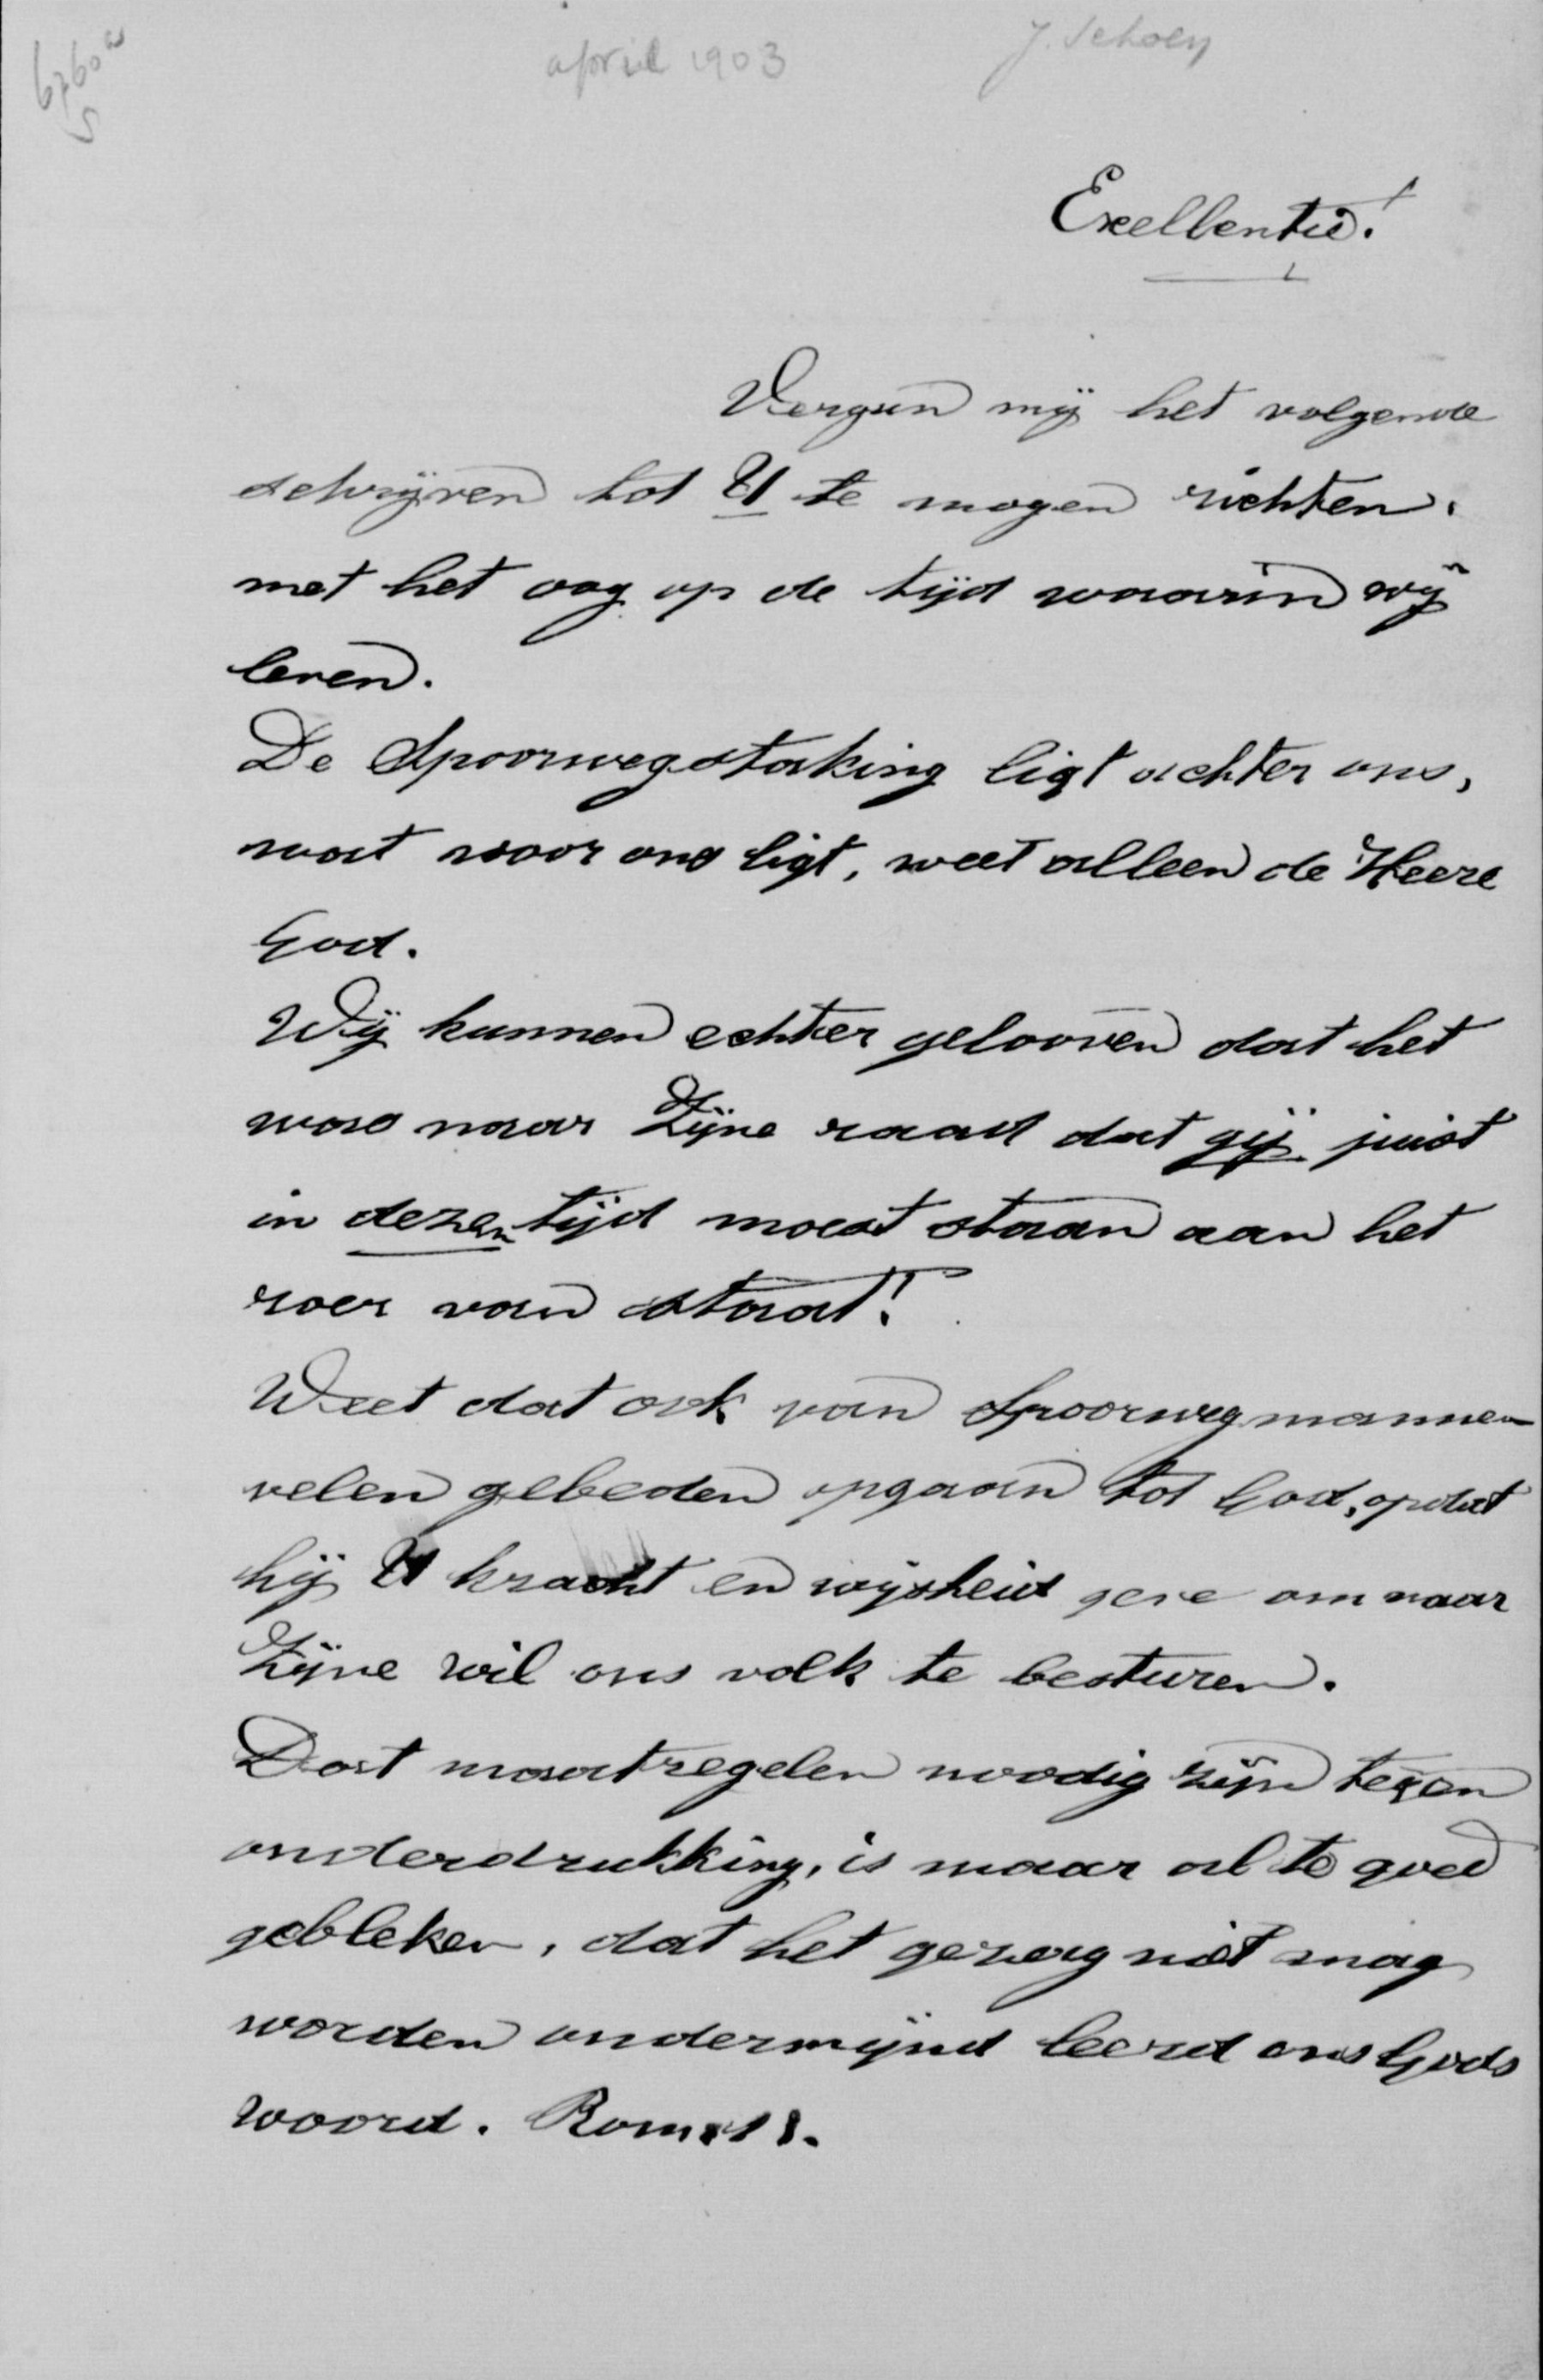 april 1903
J. Schoen
6760a
5
Exellentie!
Vergun mij het volgende
schrijven tot U te mogen richten.
met het oog op de tijd waarin wij
leven.
De Spoorwegstaking ligt achter ons,
wat voor ons ligt, weet alleen de Heere
God.
Wij kunnen echter gelooven dat het
was naar Zijne raad dat gij juist
in dezen tijd moest staan aan het
roer van staat!
Weet dat ook van Spoorwegmannen
velen gebeden opgaan tot God, opdat
hij U kracht en wijsheid geve om naar
Zijne wil ons volk te besturen.
Dat maatregelen noodig zijn tegen
onderdrukking, is maar al te goed
gebleken, dat het gezag niet mag
worden ondermijnd leerd ons Gods
woord. Rom